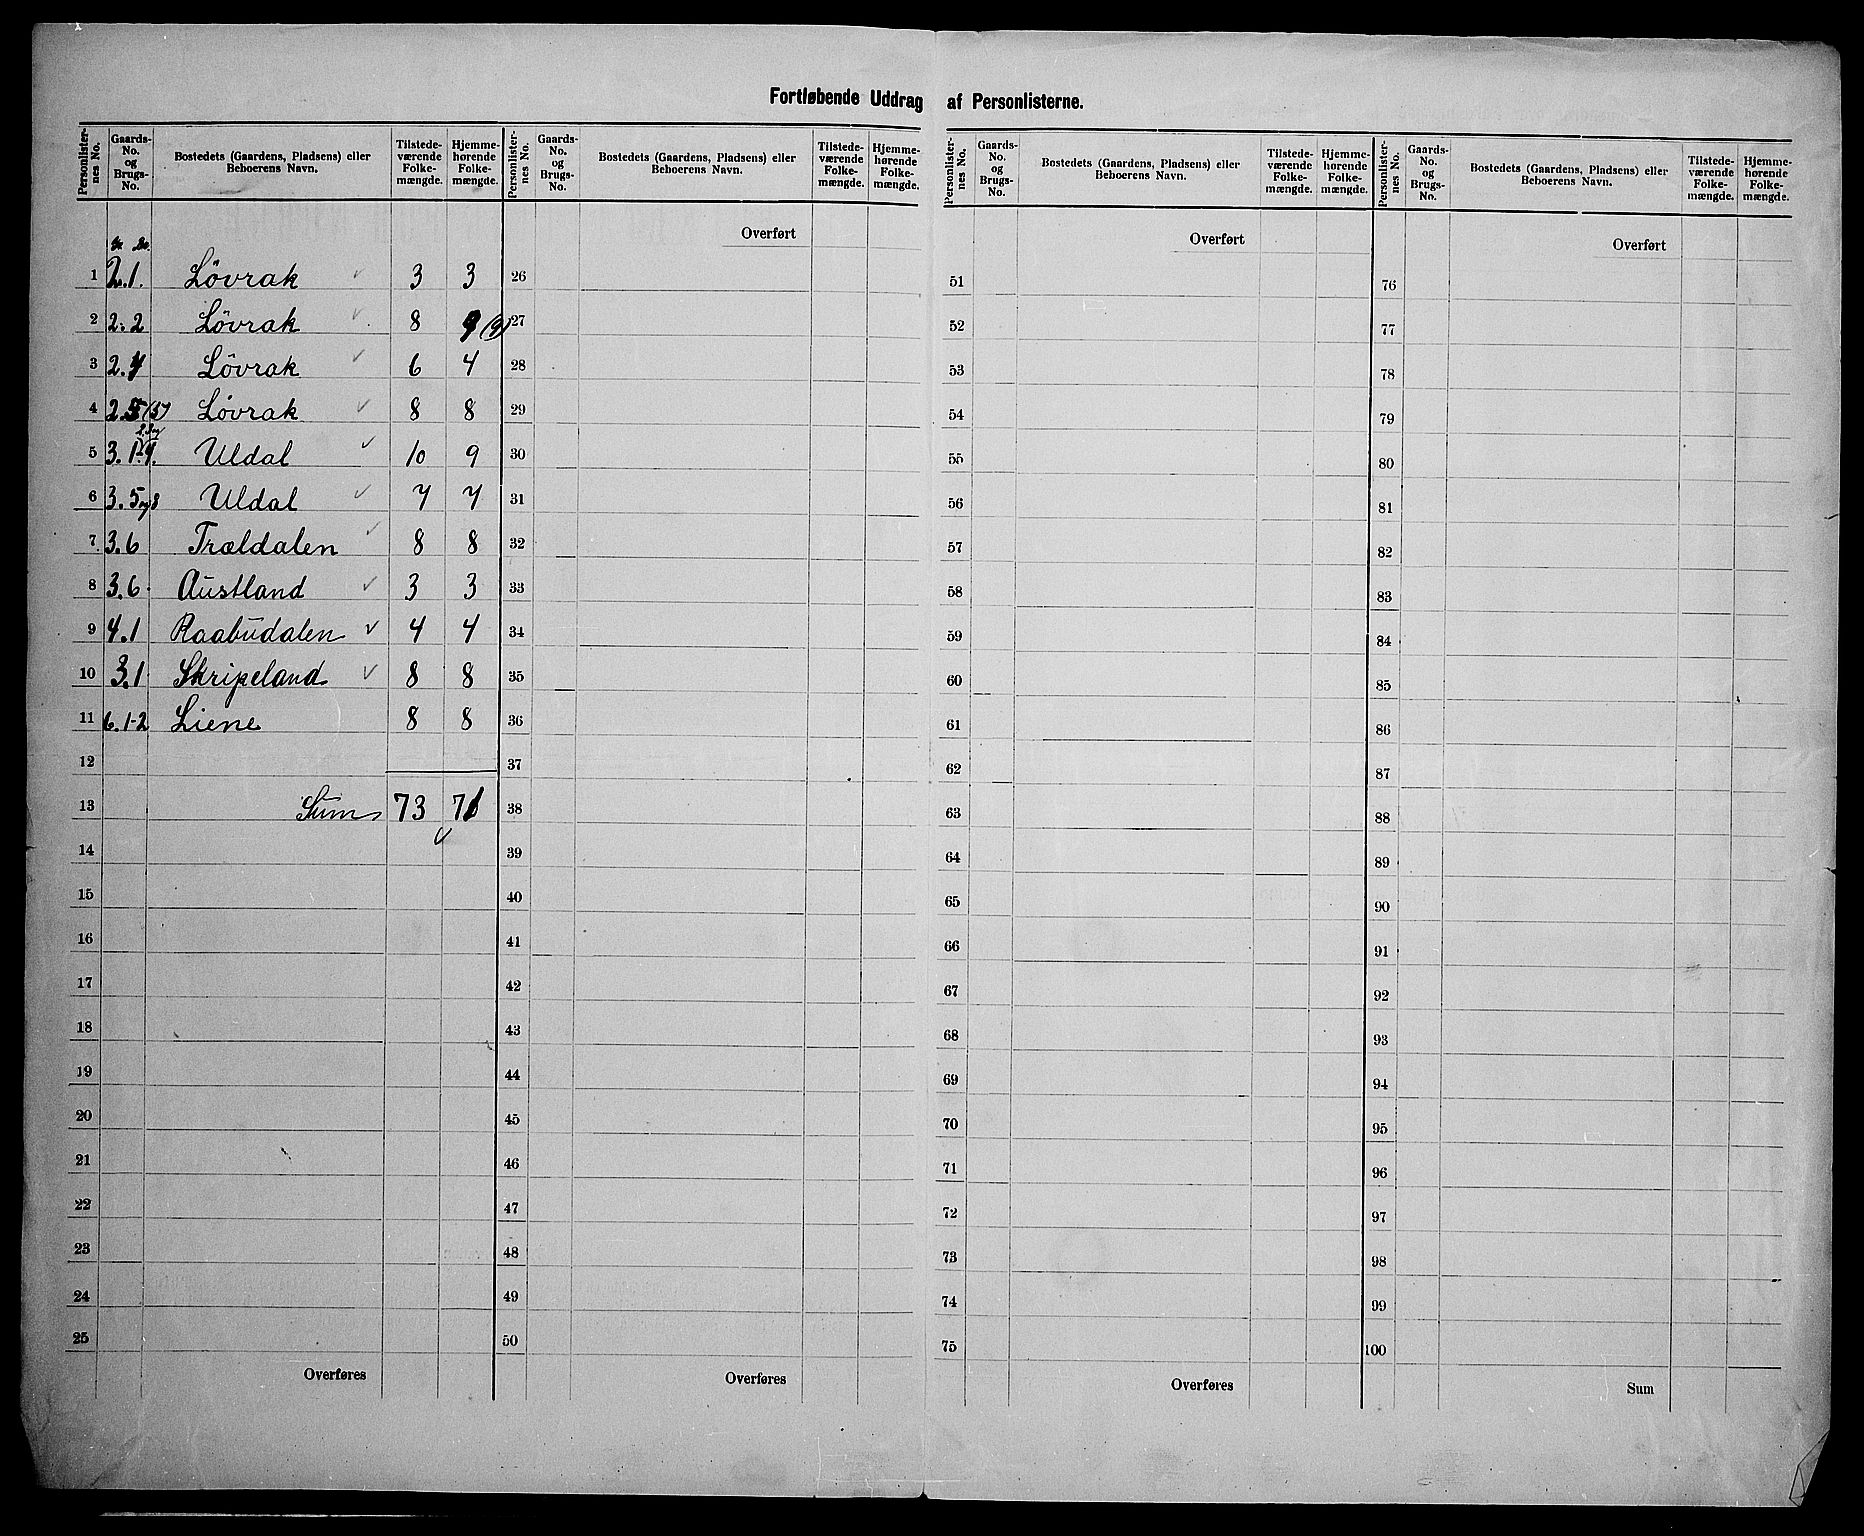 Fortløbende Uddrag af Personlisterne.
Personlister-nes No. Gaards-No. og Brugs-No. Bostedets (Gaardens, Pladsens) eller Beboerens Navn. Tilstede-værende Folke-mængde. Hjemme-hørende Folke-mængde. Personlister-nes No. Gaards-No. og Brugs-No. Bostedets (Gaardens, Pladsens) eller Beboerens Navn. Tilstede-værende Folke-mængde. Hjemme-hørende Folke-mængde. Personlister-nes No. Gaards-No. og Brugs-No. Bostedets (Gaardens, Pladsens) eller Beboerens Navn. Tilstede-værende Folke-mængde. Hjemme-hørende Folke-mængde. Personlister-nes No. Gaards-No. og Brugs-No. Bostedets (Gaardens, Pladsens) eller Beboerens Navn. Tilstede-værende Folke-mængde. Hjemme-hørende Folke-mængde.
Overført Overført Overført
1 2.1. Lövrak 3 3 26 51 76
2 2.2 Lövrak 8 9 (9) 27 52 77
3 2.4 Lövrak 6 4 28 53 78
4 2.5 (5) Lövrak 8 8 29 54 79
5 3.1 Uldal 10 9 30 55 80
6 3.5 og 8 Uldal 7 7 31 56 81
7 3.6 Træeldalen 8 8 32 57 82
8 3.6. Austland 3 3 33 58 83
9 4.1 Raabudalen 4 4 34 59 84
10 3.1 Skripeland 8 8 35 60 85
11 6.1-2 Liene 8 8 36 61 86
12 37 62 87
13 Sum 73 71 38 63 88
14 39 64 89
15 40 65 90
16 41 66 91
17 42 67 92
18 43 68 93
19 44 69 94
20 45 70 95
21 46 71 96
22 47 72 97
23 48 73 98
24 49 74 99
25 50 75 100
Overføres Overføres Overføres Sum